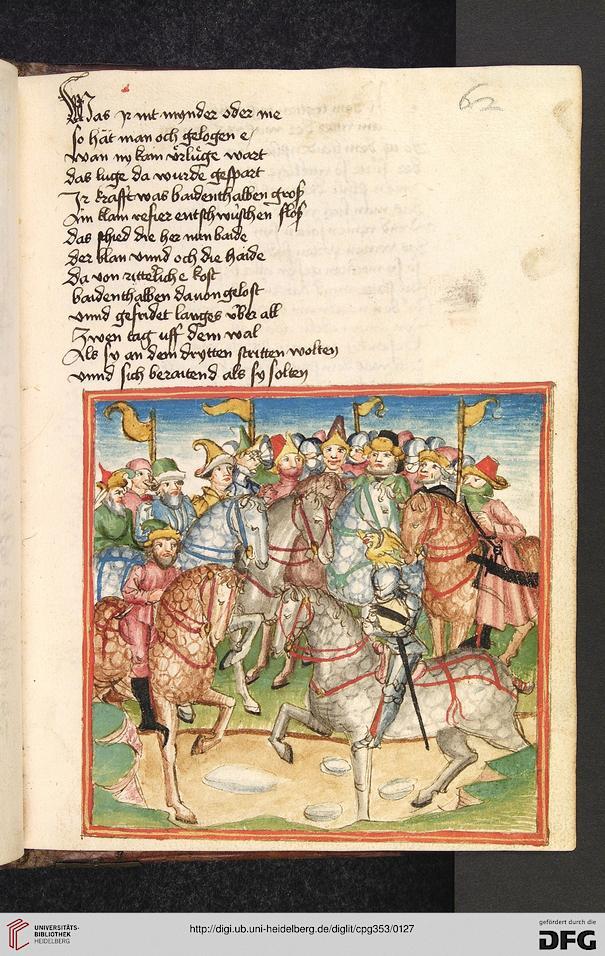 62
Was ir mt mynder oder me
so hät man och gelogen e
wan ny kain vrlüge wart
das luge da wurde gespart
Ir krafft was baidenthalben groß
Ain klain refier entschwüschen floß
das schied die her nun baide
der plan vnnd och die haide
Da von ritterliche kost
baidenthalben dauon gelost
vnnd gefridet langes vber all
Zwen tag vff dem wal
Als sy an dem drytten stritten wolten
vnnd sich beraitend als sy solten
UNIVERSITÄTS-
BIBLIOTHEK
HEIDELBERG
http://digi.ub.uni-heidelberg.de/diglit/cpg353/0127
gefördert durch die
DFG